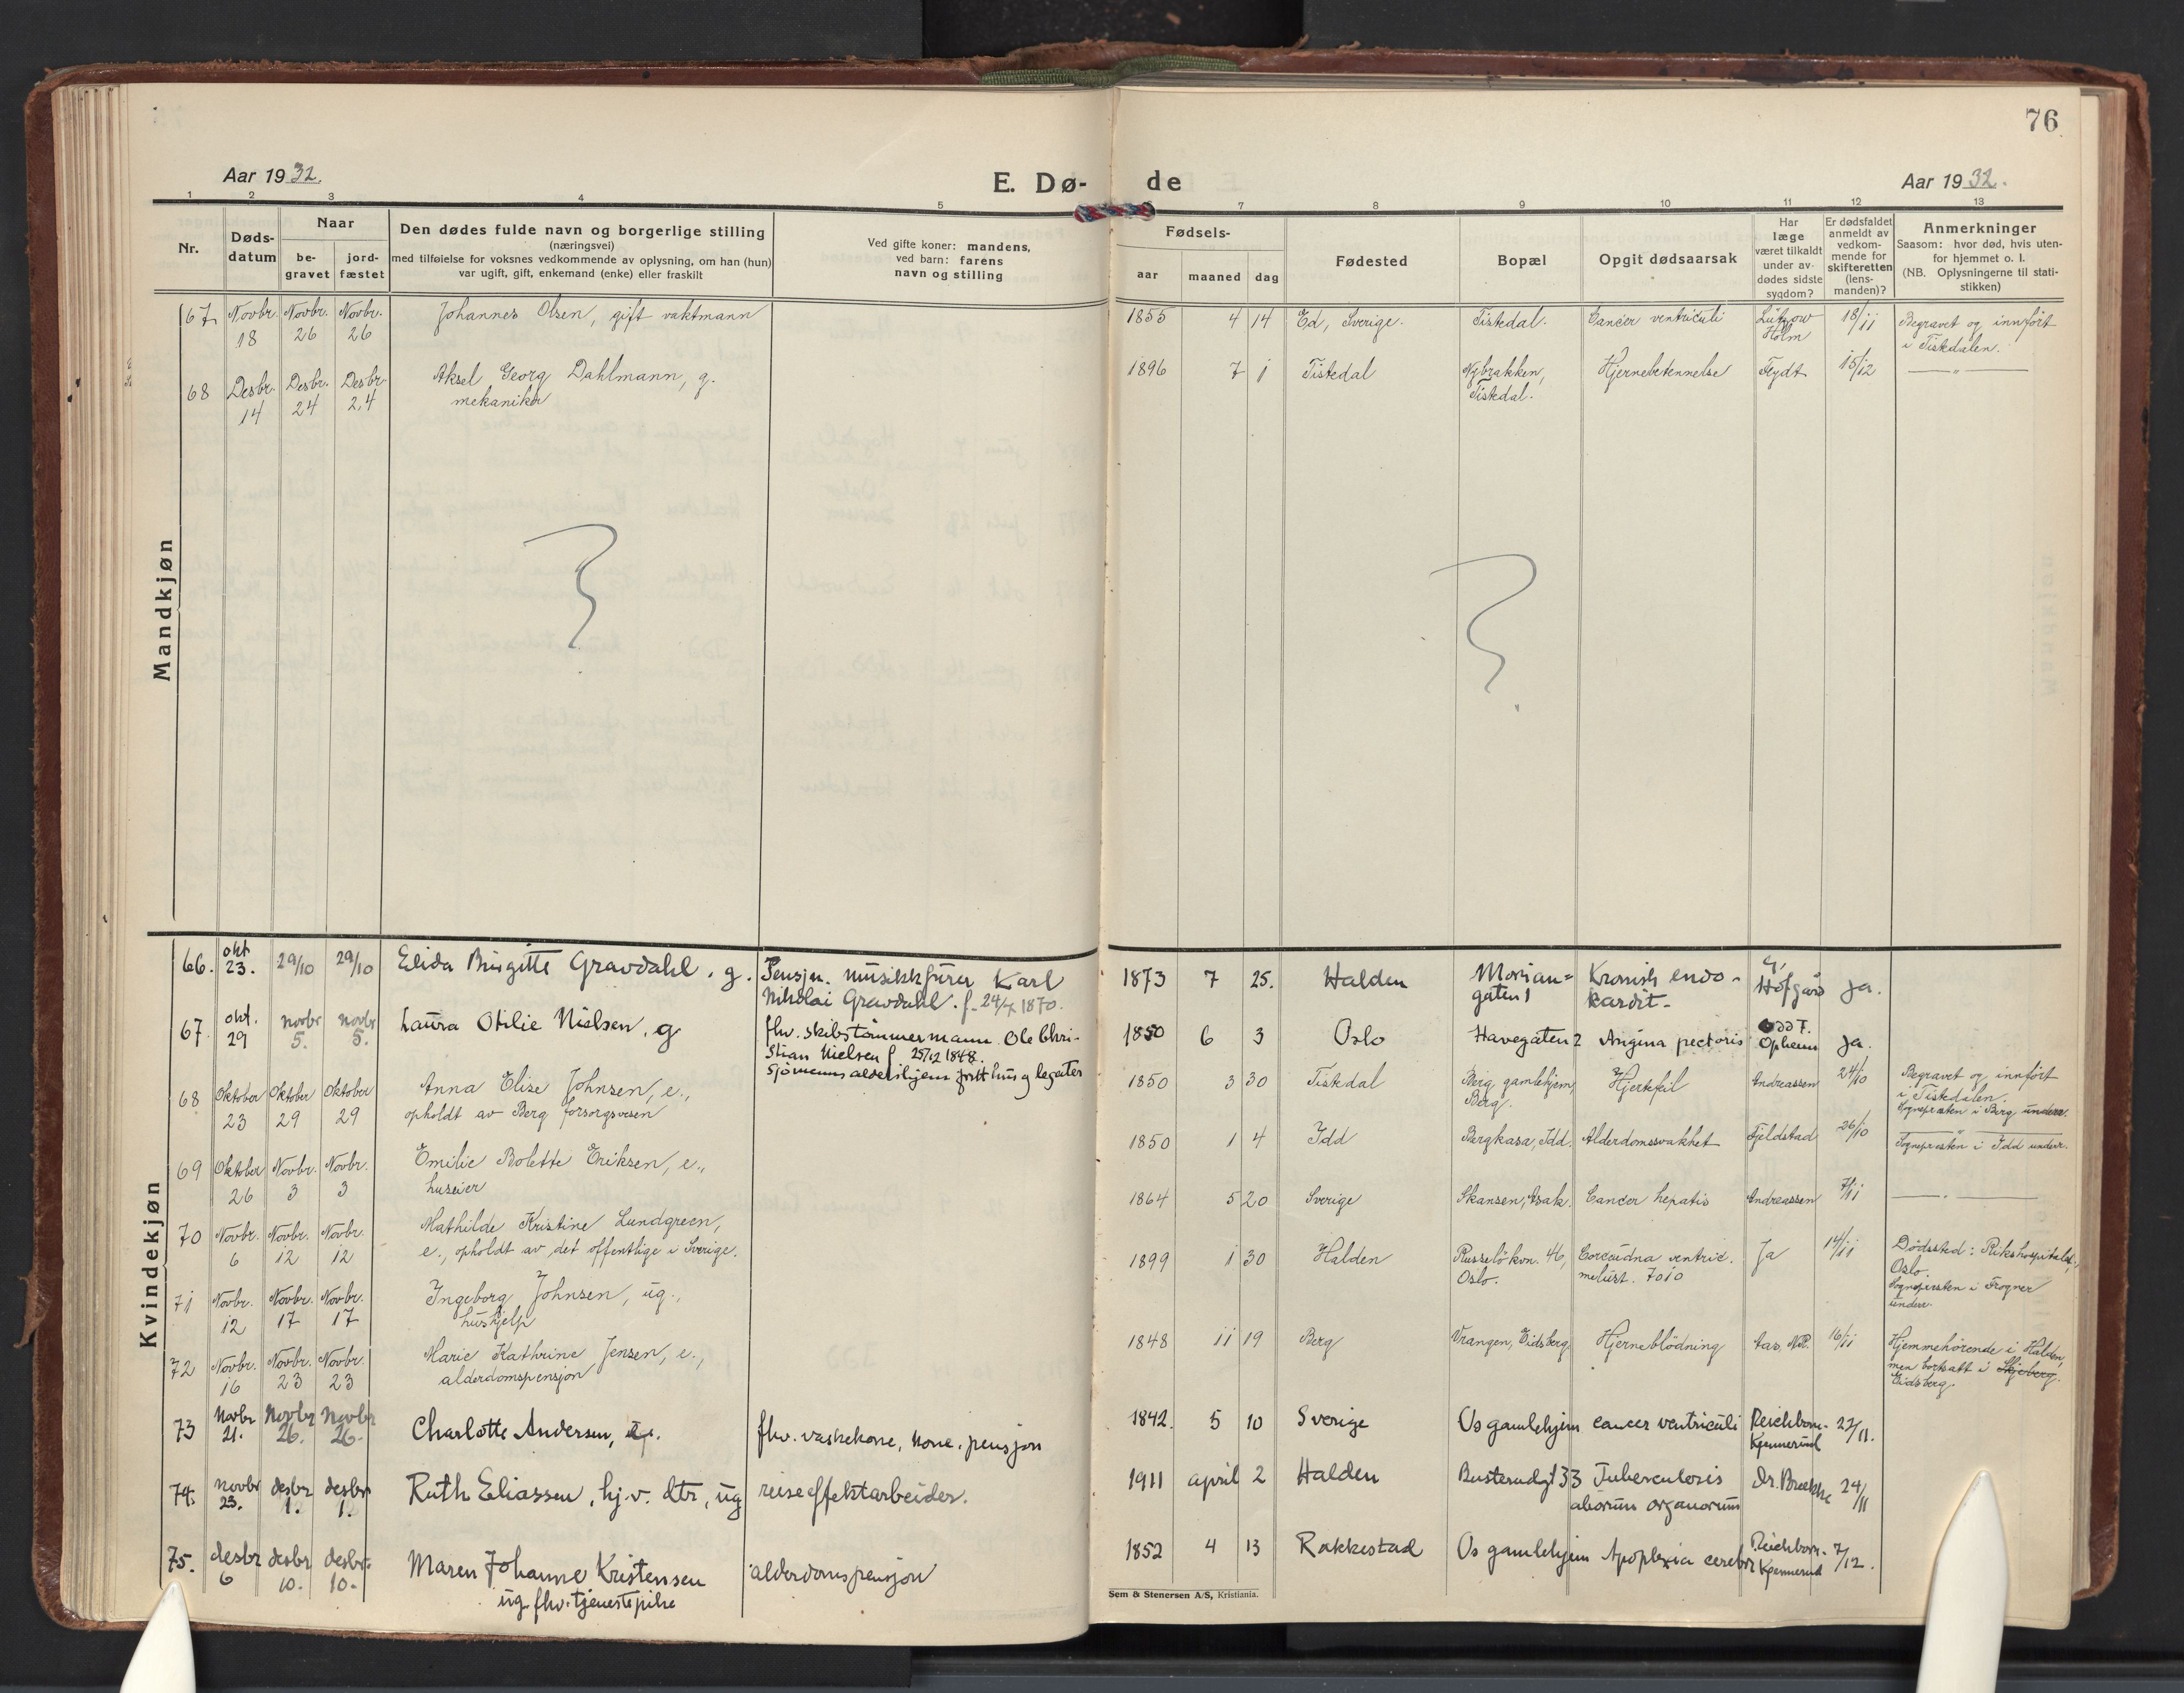 76
Aar 1932.
E. Dø-
de
Aar 1932.
1 2 3 4 5 6 7 8 9 10 11 12 13
Nr.
Døds-
datum
Naar
be-
gravet
jord-
fæstet
Den dødes fulde navn og borgerlige stilling
(næringsvei)
med tilføielse for voksnes vedkommende av oplysning, om han (hun)
var ugift, gift, enkemand (enke) eller fraskilt
Ved gifte koner: mandens,
ved barn: farens
navn og stilling
Fødsels-
aar
maaned
dag
Fødested
Bopæl
Opgit dødsaarsak
Har
læge
været tilkaldt
under av-
dødes sidste
sygdom?
Er dødsfaldet
anmeldt av
vedkom-
mende for
skifteretten
(lens-
manden)?
Anmerkninger
Saasom: hvor død, hvis uten-
for hjemmet o. l.
(NB. Oplysningerne til stati-
stikken)
Mandkjøn
67 Novbr. Novbr. Novbr. Johannes Olsen, gift vaktmann 1855 4 14 Ed, Sverige. Tistedal. Cancer ventriculi Lützow 18/11 Begravet og innført
18 26 26 Holm i Tistedalen.
68 Desbr. Desbr. Desbr. Aksel Georg Dahlmann, g. 1896 7 1 Tistedal Nybrakken, Hjernebetennelse Feydt 15/12 — " —
14 24 24 mekaniker Tistedal.
Kvindekjøn
66. okt 29/10 29/10 Elida Birgitte Gravdahl. g. Pensjn. musikkfürer Karl 1873 7 25. Halden Morian= Kronisk endo- Hofgård Ja.
23. Nikolai Gravdahl. f. 24/4 1870. gaten 1 kardit.
67 okt. novbr novbr Laura Otilie Nielsen. g fhv. skibstømmermann Ole Chri- 1850 6 3 Oslo Havegaten 2 Angina pectoris Odd F. Ja.
29 5. 5. stian Nielsen f. 25/12 1848. Opheim
Sjömenns aldershjem fritt hus og legater
68 Oktober Oktober Oktober Anna Elise Johnsen, e., 1850 3 30 Tistedal Berg gamlehjem, Hjertefeil Andreassen 24/10 Begravet og innført
23 29 29 opholdt av Berg forsorgsvesen Berg. i Tistedalen.
Sogneprsten i Berg underr.
69 Oktober Novbr. Novbr. Emilie Bolette Eriksen, e., 1850 1 4 Idd Bergkasa, Idd. Alderdomssvakhet Fjeldstad 26/10 — " —
26 3 3 huseier Sogneprsten i Idd underr.
70 Novbr. Novbr. Novbr. Mathilde Kristine Lundgreen, 1864 5 20 Sverige Skansen, Asak. Cancer hepatis Andreassen 7/11 — " —
6 12 12 e., opholdt av det offentlige i Sverige.
71 Novbr. Novbr. Novbr. Ingeborg Johnsen, ug., 1899 1 30 Halden Russeløkvn. 46, ventric. Ja 14/11 Dødssted: Rikshospitalet,
12 17 17 hushjelp Oslo. 7010 Oslo.
Sogneprsten i Frogner
underr.
72 Novbr. Novbr. Novbr. Marie Kathrine Jensen, e., 1848 11 19 Berg Vrangen, Eidsberg Hjerneblödning Aas, 16/11 Hjemmehörende i Halden,
16 23 23 alderdomspensjon men bortsatt i Skjeberg.
Eidsberg.
73 Novbr Novbr Novbr Charlotte Andersen, fhv. vaskekone, kom. pensjon 1842. 5 10 Sverige Os gamlehjem cancer ventriculi Reichborn- 27/11.
21. 26. 26. Kjennerud
74. novbr desbr desbr Ruth Eliassen, hj.v. dtr, ug reiseeffektarbeider. 1911 april 2 Halden Busterudgt 33 Tuberculosis Dr. Brække 24/11
23. 1. 1. aliorum organorum
75. desbr desbr desbr Maren Johanne Kristensen alderdomspensjon 1852 4 13 Rakkestad Os gamlehjem Apoplexia cerebri Reichborn- 7/12.
6 10. 10. ug. fhv. tjenestepike Kjennerud
Sem & Stenersen A/S, Kristiania.